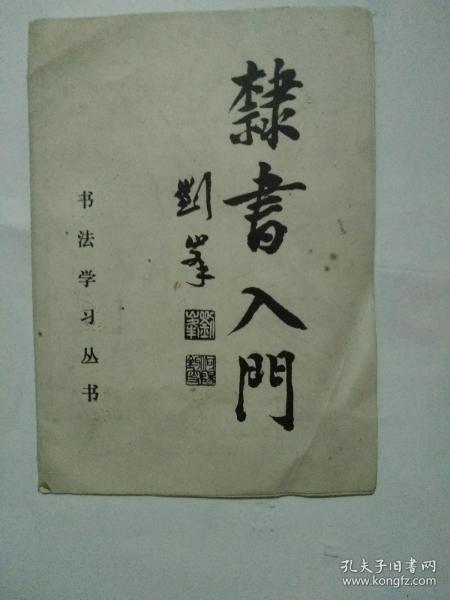 隸書入門
劉峯
劉峯
书法学习丛书
孔夫子旧书网
www.kongfz.com